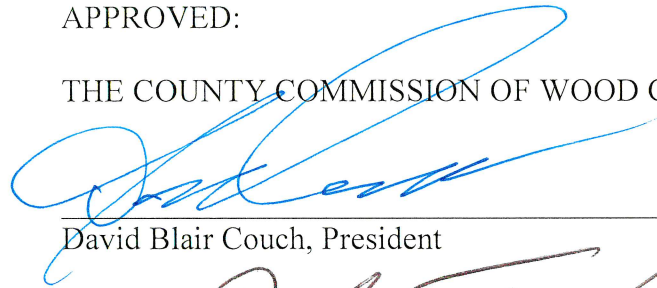 APPROVED:
THE COUNTY COMMISSION OF WOOD
David Blair Couch, President